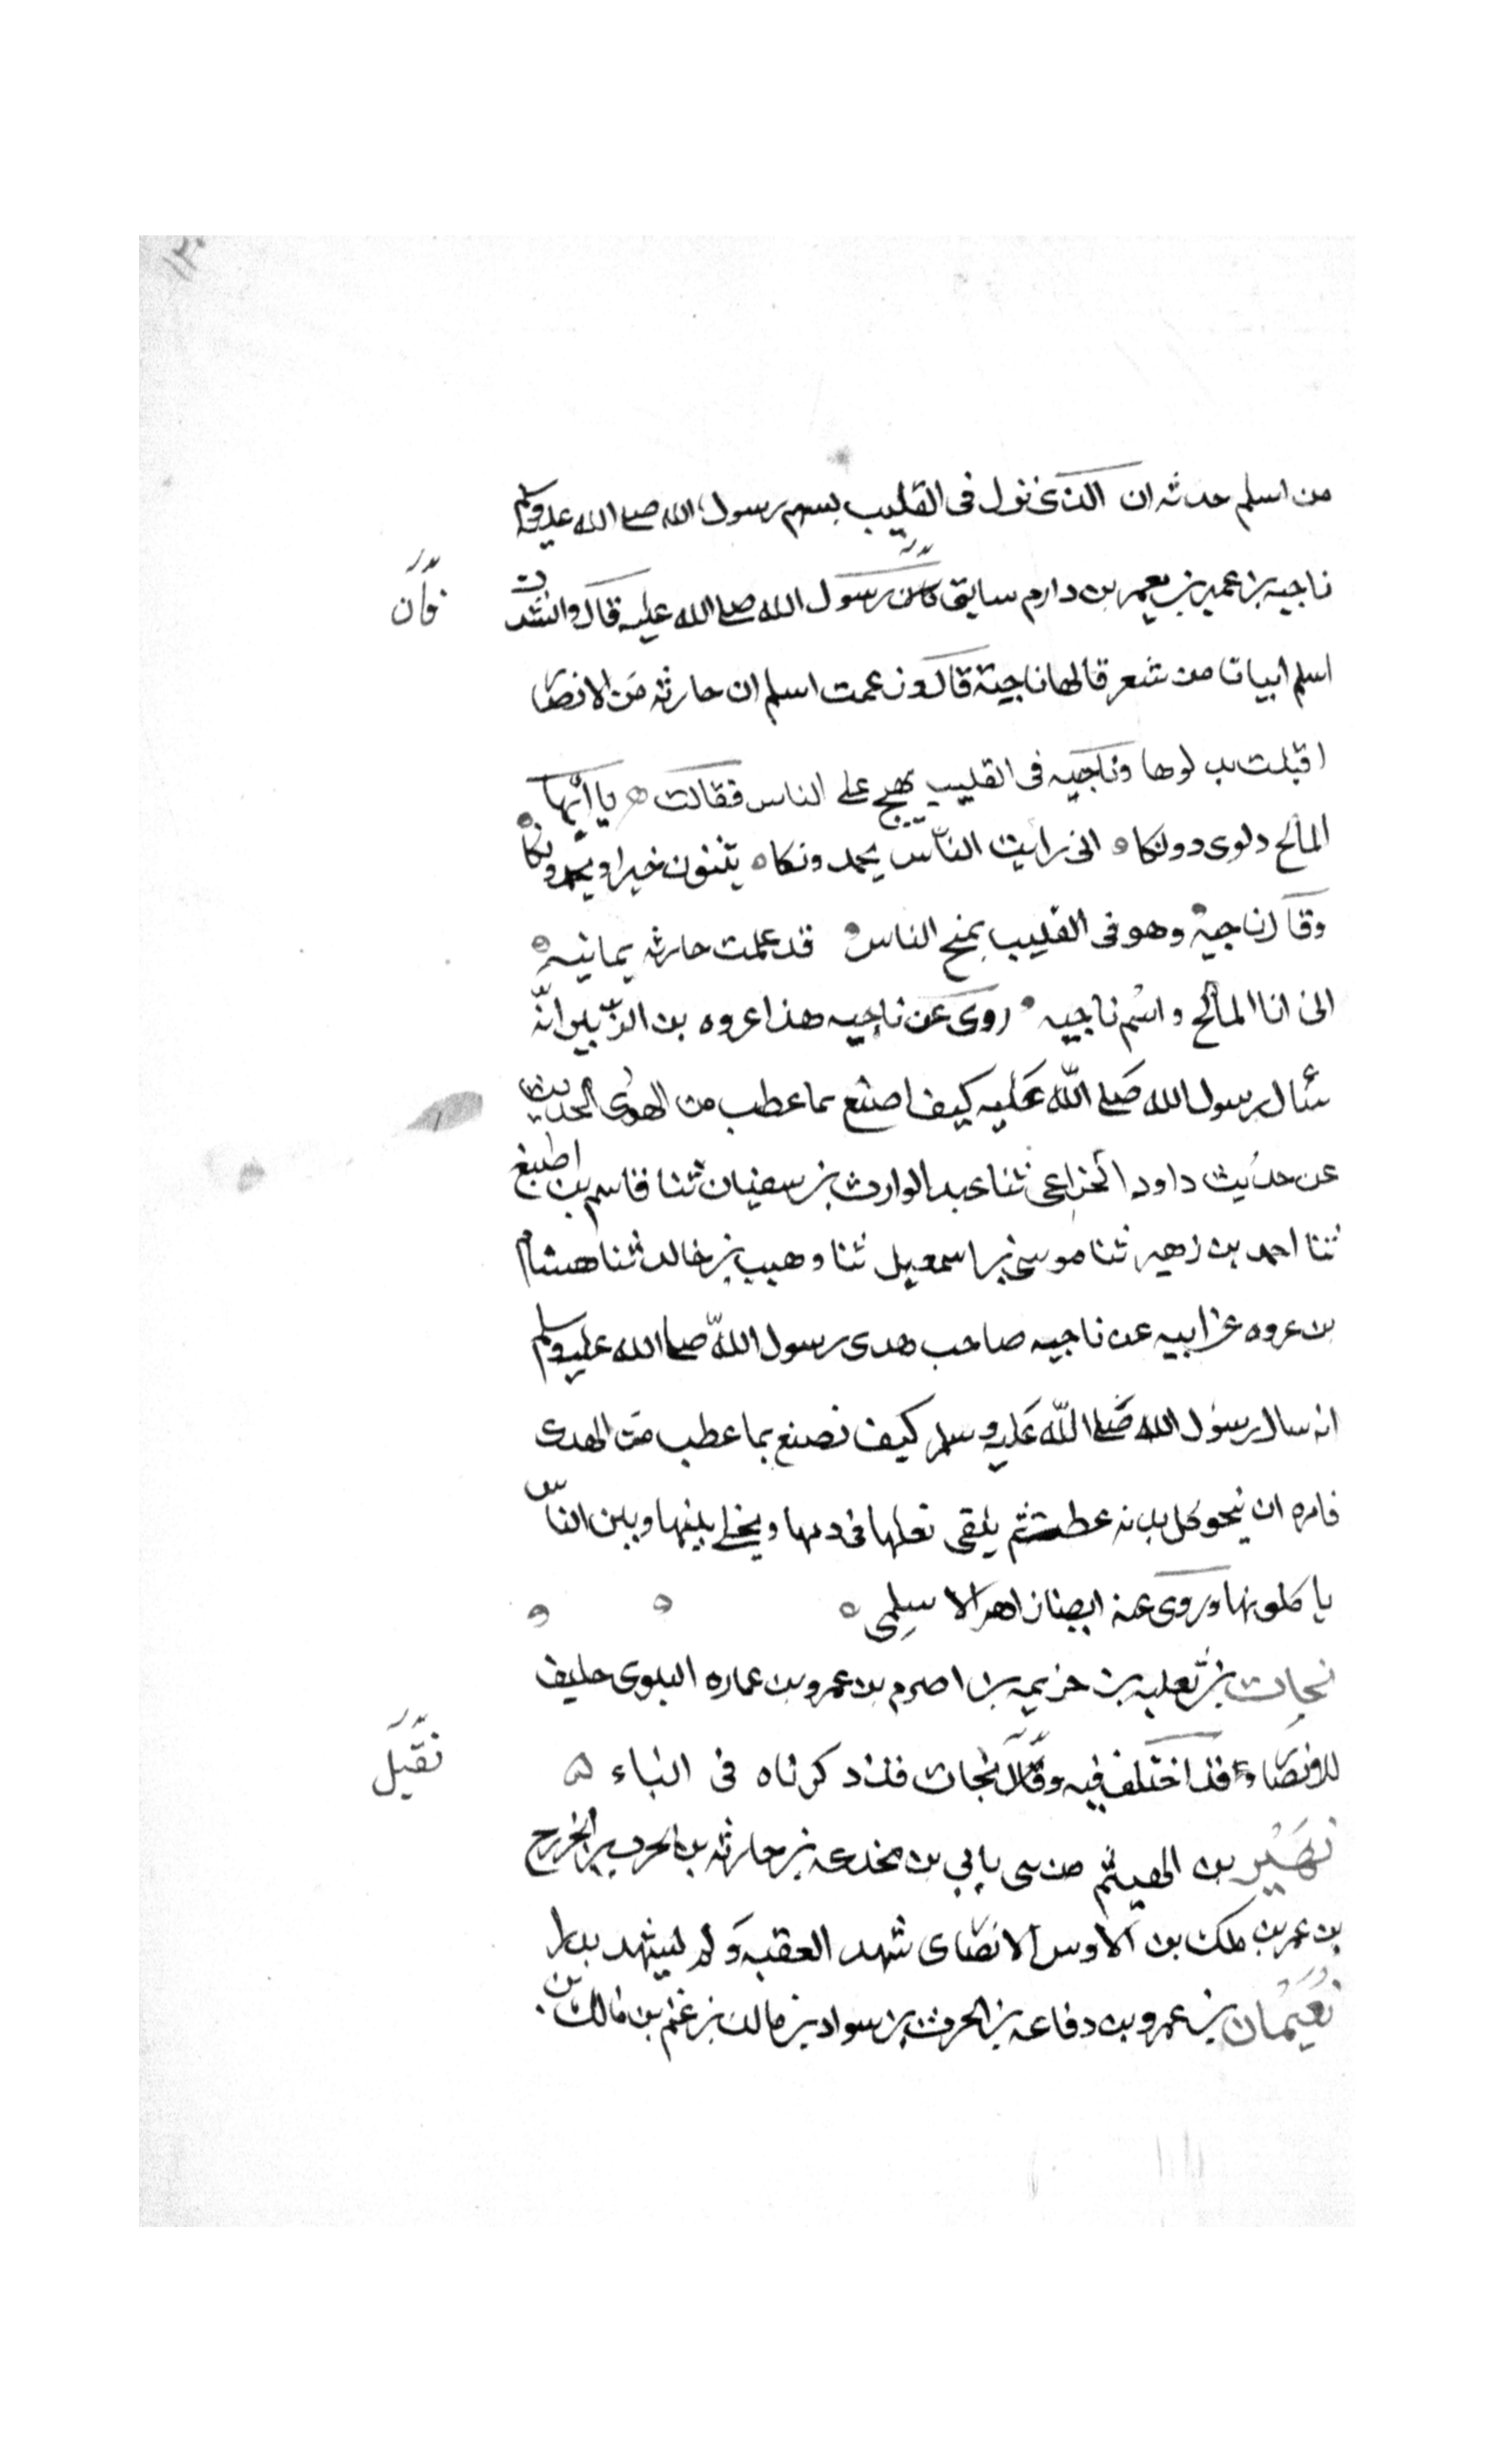 من اسلم حدثه ان الذى نزل فى القليب بسهم رسول الله صلى الله عليه وسلم
ناجيه بن عمير بن يعمر بن دارم سايق رسول الله صلى الله عليه قال وانشدت
اسلم ابيات من شعر قالها ناجية قال وزعمت اسلم ان حارثه من الانصا
اقبلت بدلوها وناجيه فى القليب يميح على الناس فقالت يا ايها
المائح دلوى دونكا انى رايت الناس يحمدونكا يثنون خيرا ويمجدونكا
وقال ناجية وهو فى القليب يميح الناس قد علمت حارثه يمانيه
انى انا المائح واسم ناجيه روى عن ناجيه هذا عروه بن الزبير انّه
سئال رسول الله صلى الله عليه كيف اصنع بما عطب من الهدى الحديث
عن حديث داود الخزاعى ثنا عبد الوارث بن سفيان ثنا قاسم بن اصبغ
ثنا احمد بن زهير ثنا موسى بن اسمعيل ثنا وهيب بن خالد ثنا هشام
بن عروه عن ابيه عن ناجيه صاحب هدى رسول الله صلى الله عليه وسلم
انه سال رسول الله صلى الله عليه وسلم كيف نصنع بما عطب من الهدى
فامره ان ينحر كل بدنه عطبت ثم يلقى نعلها فى دمها ويخلى بينها وبين الناس
ياكلونها وروى عنه ايضا زاهر الاسلمى
نحات بن ثعلبه بن خزيمه بن اصرم بن عمرو بن عماره البلوى حليف
للانصار قد اختلف فيه وقال نجات قد ذكرناه فى الباء
نقيل
نهير بن الهيثم من بنى نابي بن مجدعه بن حارثه بن الحرث بن الخزرج
بن عمر بن ملك بن الاوس الانصاى شهد العقبه ولم يشهد بدرا
نعيمان بن عمرو بن رفاعه بن الحرث بن سواد بن مالك بن غنم بن مالك بن